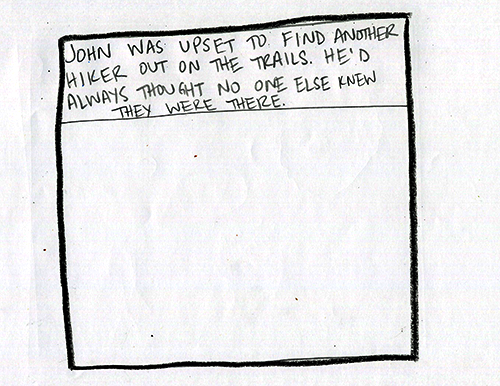 JOHN WAS UPSET TO FIND ANOTHER
HIKER OUT ON THE TRAILS. HE'D
ALWAYS THOUGHT NO ONE ELSE KNEW
THEY WERE THERE.